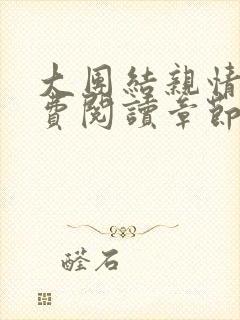 大団結親情
費閱讀章節
醛石